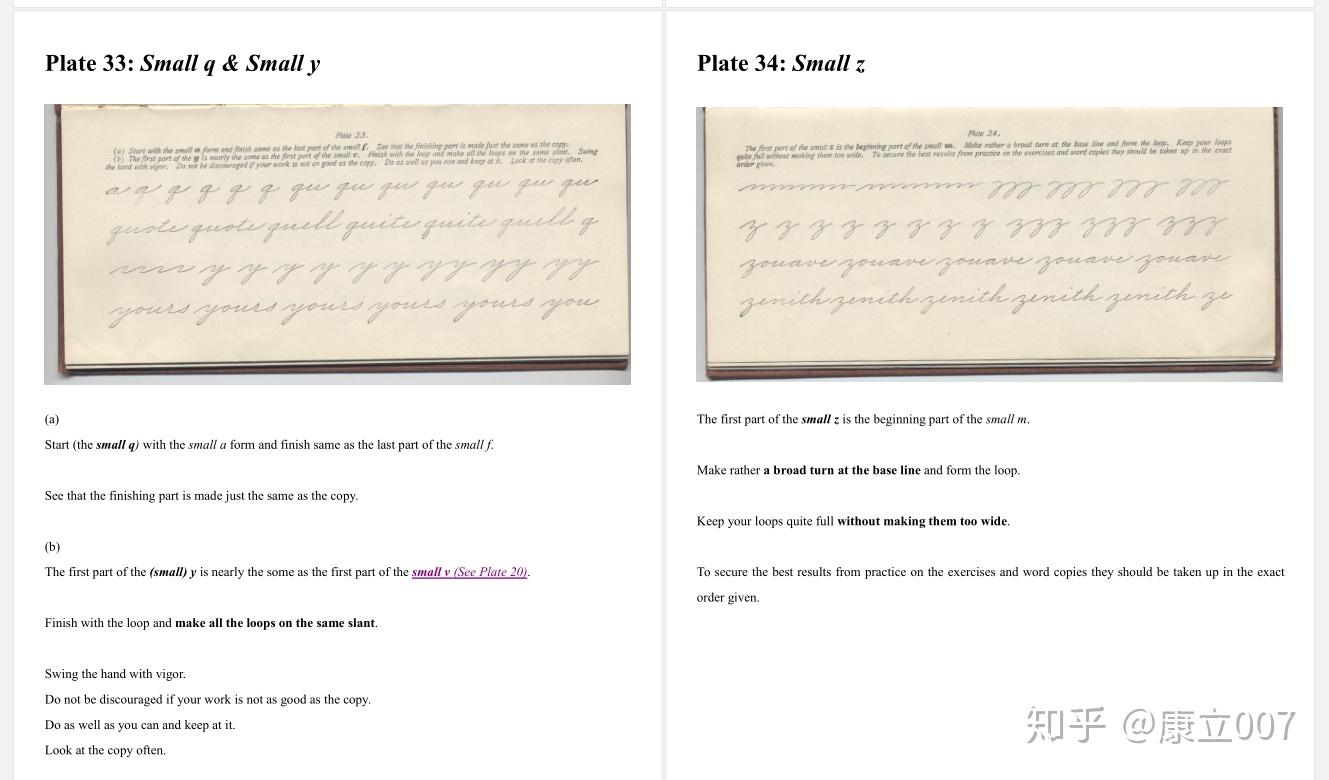 Plate 33: Small q & Small y
Plate 33.
(a) Start with the small a form and finish same as the last part of the small f. See that the finishing part is made just the same as the copy.
(b) The first part of the y is nearly the same as the first part of the small v. Finish with the loop and make all the loops on the same slant. Swing
the hand with vigor. Do not be discouraged if your work is not as good as the copy. Do as well as you can and keep at it. Look at the copy often.
a a q q q q q qu qu qu qu qu qu qu
quote quote quell quite quite quell q
y y y y y y yy yy yy
yours yours yours yours yours you
(a)
Start (the small q) with the small a form and finish same as the last part of the small f.
See that the finishing part is made just the same as the copy.
(b)
The first part of the (small) y is nearly the some as the first part of the small v (See Plate 20).
Finish with the loop and make all the loops on the same slant.
Swing the hand with vigor.
Do not be discouraged if your work is not as good as the copy.
Do as well as you can and keep at it.
Look at the copy often.
Plate 34: Small z
Plate 34.
The first part of the small z is the beginning part of the small m. Make rather a broad turn at the base line and form the loop. Keep your loops
quite full without making them too wide. To secure the best results from practice on the exercises and word copies they should be taken up in the exact
order given.
z z z z z z z z zzz zzz zzz
zouave zouave zouave zouave zouave
zenith zenith zenith zenith zenith ze
The first part of the small z is the beginning part of the small m.
Make rather a broad turn at the base line and form the loop.
Keep your loops quite full without making them too wide.
To secure the best results from practice on the exercises and word copies they should be taken up in the exact
order given.
知乎 @康立007